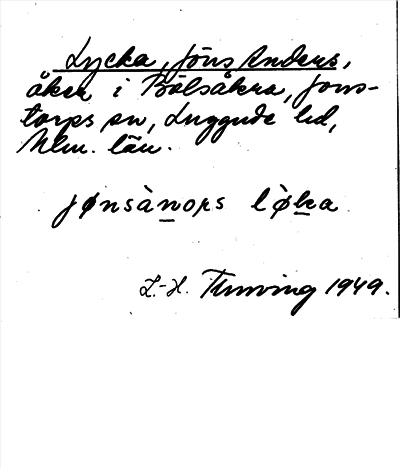 Lycka, Jöns Anders,
åker i Bölsåkra, Jons-
torps sn, Luggude hd,
Mlm. län.
jønsànoɲs lø̀ka
L.-H. Thnving 1949.